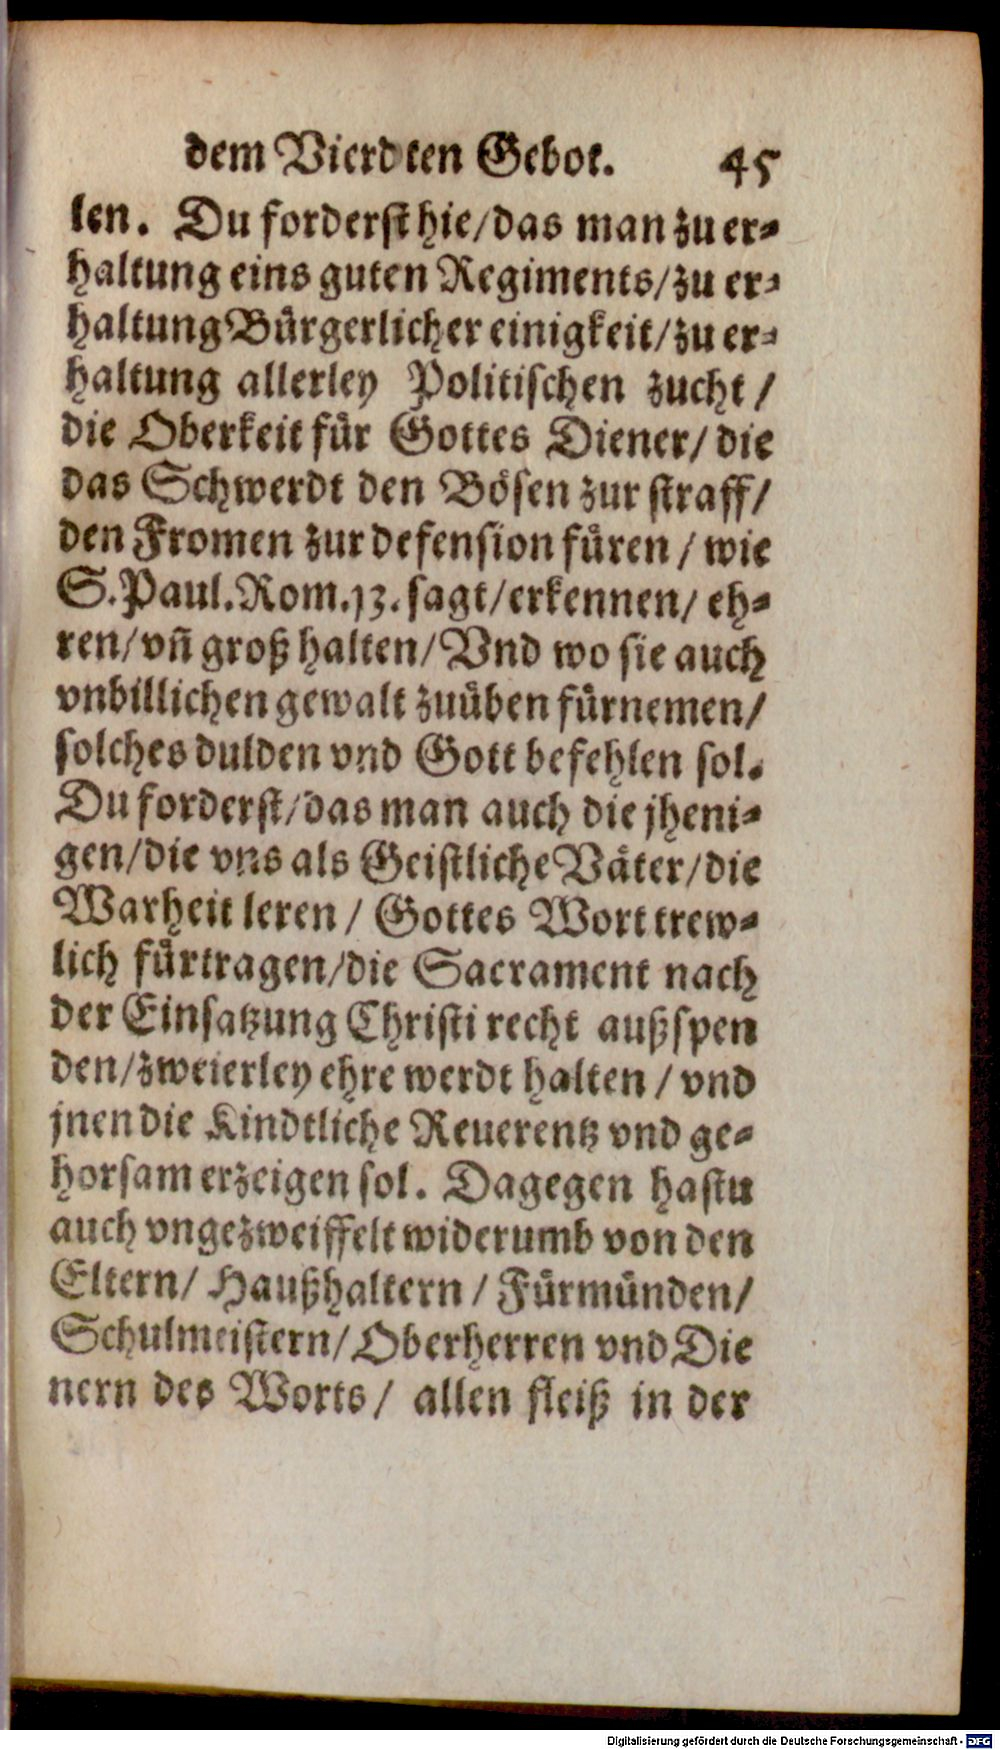 dem Vierdten Gebot. 45
len. Du forderst hie/das man zu er-
haltung eins guten Regiments/zu er-
haltung Bürgerlicher einigkeit/zu er-
haltung allerley Politischen zucht/
die Oberkeit für Gottes Diener/die
das Schwerdt den Bösen zur straff/
den Fromen zur defension füren/wie
S.Paul.Rom.13.sagt/erkennen/eh-
ren/vñ groß halten/Vnd wo sie auch
vnbillichen gewalt zuüben fürnemen/
solches dulden vnd Gott befehlen sol.
Du forderst/das man auch die jheni-
gen/die vns als Geistliche Väter/die
Warheit leren/Gottes Wort trew-
lich fürtragen/die Sacrament nach
der Einsatzung Christi recht außspen
den/zweierley ehre werdt halten/vnd
jnen die Kindtliche Reuerentz vnd ge-
horsam erzeigen sol. Dagegen hastu
auch vngezweiffelt widerumb von den
Eltern/Haußhaltern/Fürmünden/
Schulmeistern/Oberherren vnd Die
nern des Worts/allen fleiß in der
Digitalisierung gefördert durch die Deutsche Forschungsgemeinschaft - DFG